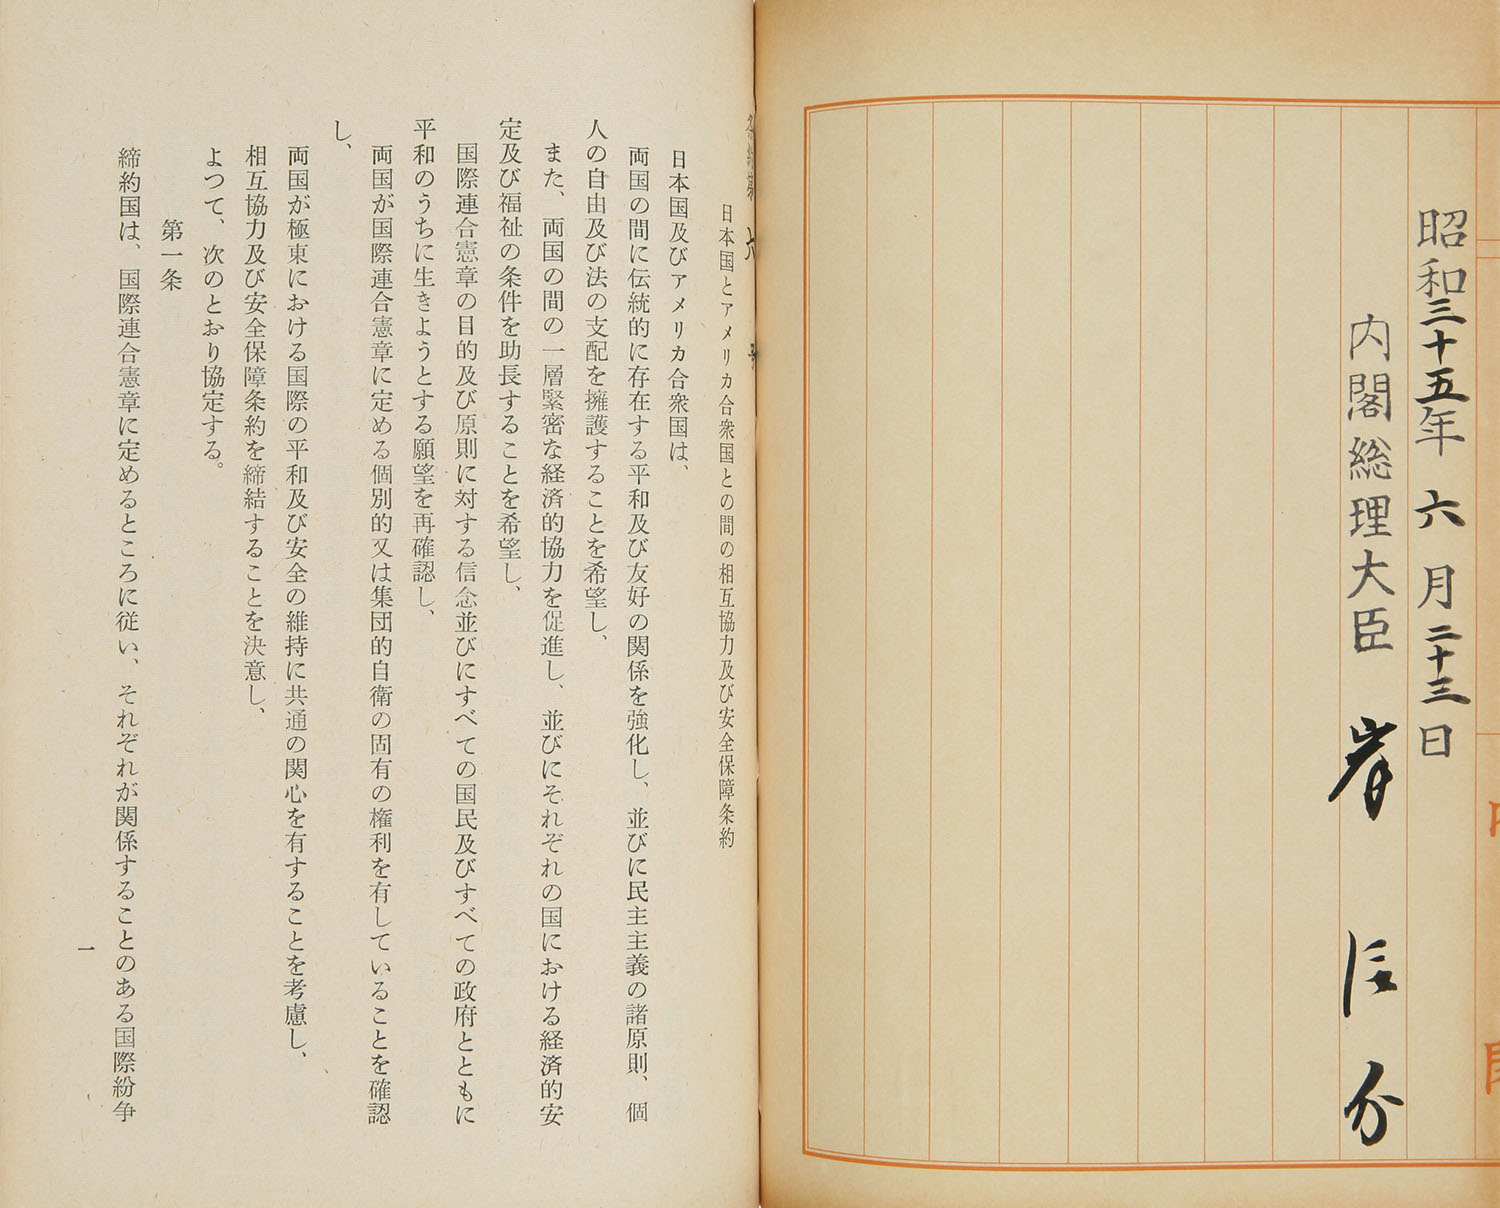 昭和三十五年六月二十三日
内閣総理大臣 岸信介
条約第六号
日本国とアメリカ合衆国との間の相互協力及び安全保障条約
日本国及びアメリカ合衆国は、
両国の間に伝統的に存在する平和及び友好の関係を強化し、並びに民主主義の諸原則、個
人の自由及び法の支配を擁護することを希望し、
また、両国の間の一層緊密な経済的協力を促進し、並びにそれぞれの国における経済的安
定及び福祉の条件を助長することを希望し、
国際連合憲章の目的及び原則に対する信念並びにすべての国民及びすべての政府とともに
平和のうちに生きようとする願望を再確認し、
両国が国際連合憲章に定める個別的又は集団的自衛の固有の権利を有していることを確認
し、
両国が極東における国際の平和及び安全の維持に共通の関心を有することを考慮し、
相互協力及び安全保障条約を締結することを決意し、
よつて、次のとおり協定する。
第一条
締約国は、国際連合憲章に定めるところに従い、それぞれが関係することのある国際紛争
一